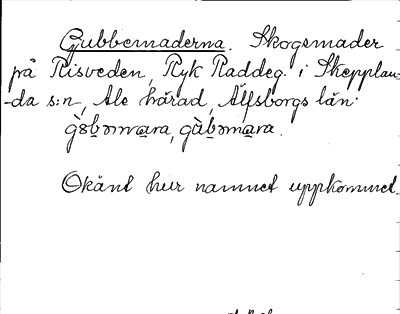 Gubbemaderna. Skogsmader
på Risveden, Ryk Raddeg. i Skepplan-
-da s:n, Ale härad, Älfsborgs län.
Okänt hur namnet uppkommit.